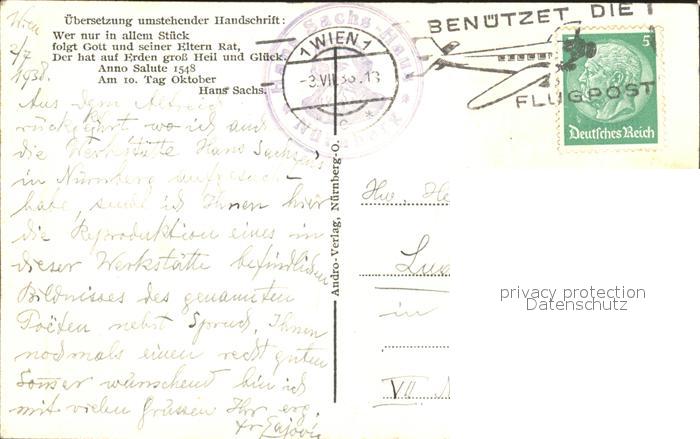 Übersetzung umstehender Handschrift:
Wer nur in allem Stück
folgt Gott und seiner Eltern Rat,
Der hat auf Erden groß Heil und Glück.
Anno Salute 1548
Am 10. Tag Oktober
Hans Sachs.
Wien
2/7
1938.
Aus dem
rückgekehrt, wo ich auch
die Werkstätte Hans Sachsens
in Nürnberg aufgesucht
habe, sende ich Ihnen hier
die Reproduktion eines in
dieser Werkstätte befindlichen
Bildnisses des genannten
Poëten nebst Spruch, Ihnen
nochmals einen recht guten
Sommer wünschend bin ich
mit vielen Grüssen Ihr erg.
Andro-Verlag, Nürnberg-O.
Hans-Sachs-Haus
1 WIEN 1
-3.VII.38.18
BENÜTZET DIE
FLUGPOST
5
Deutsches Reich
in
VII.
privacy protection
Datenschutz